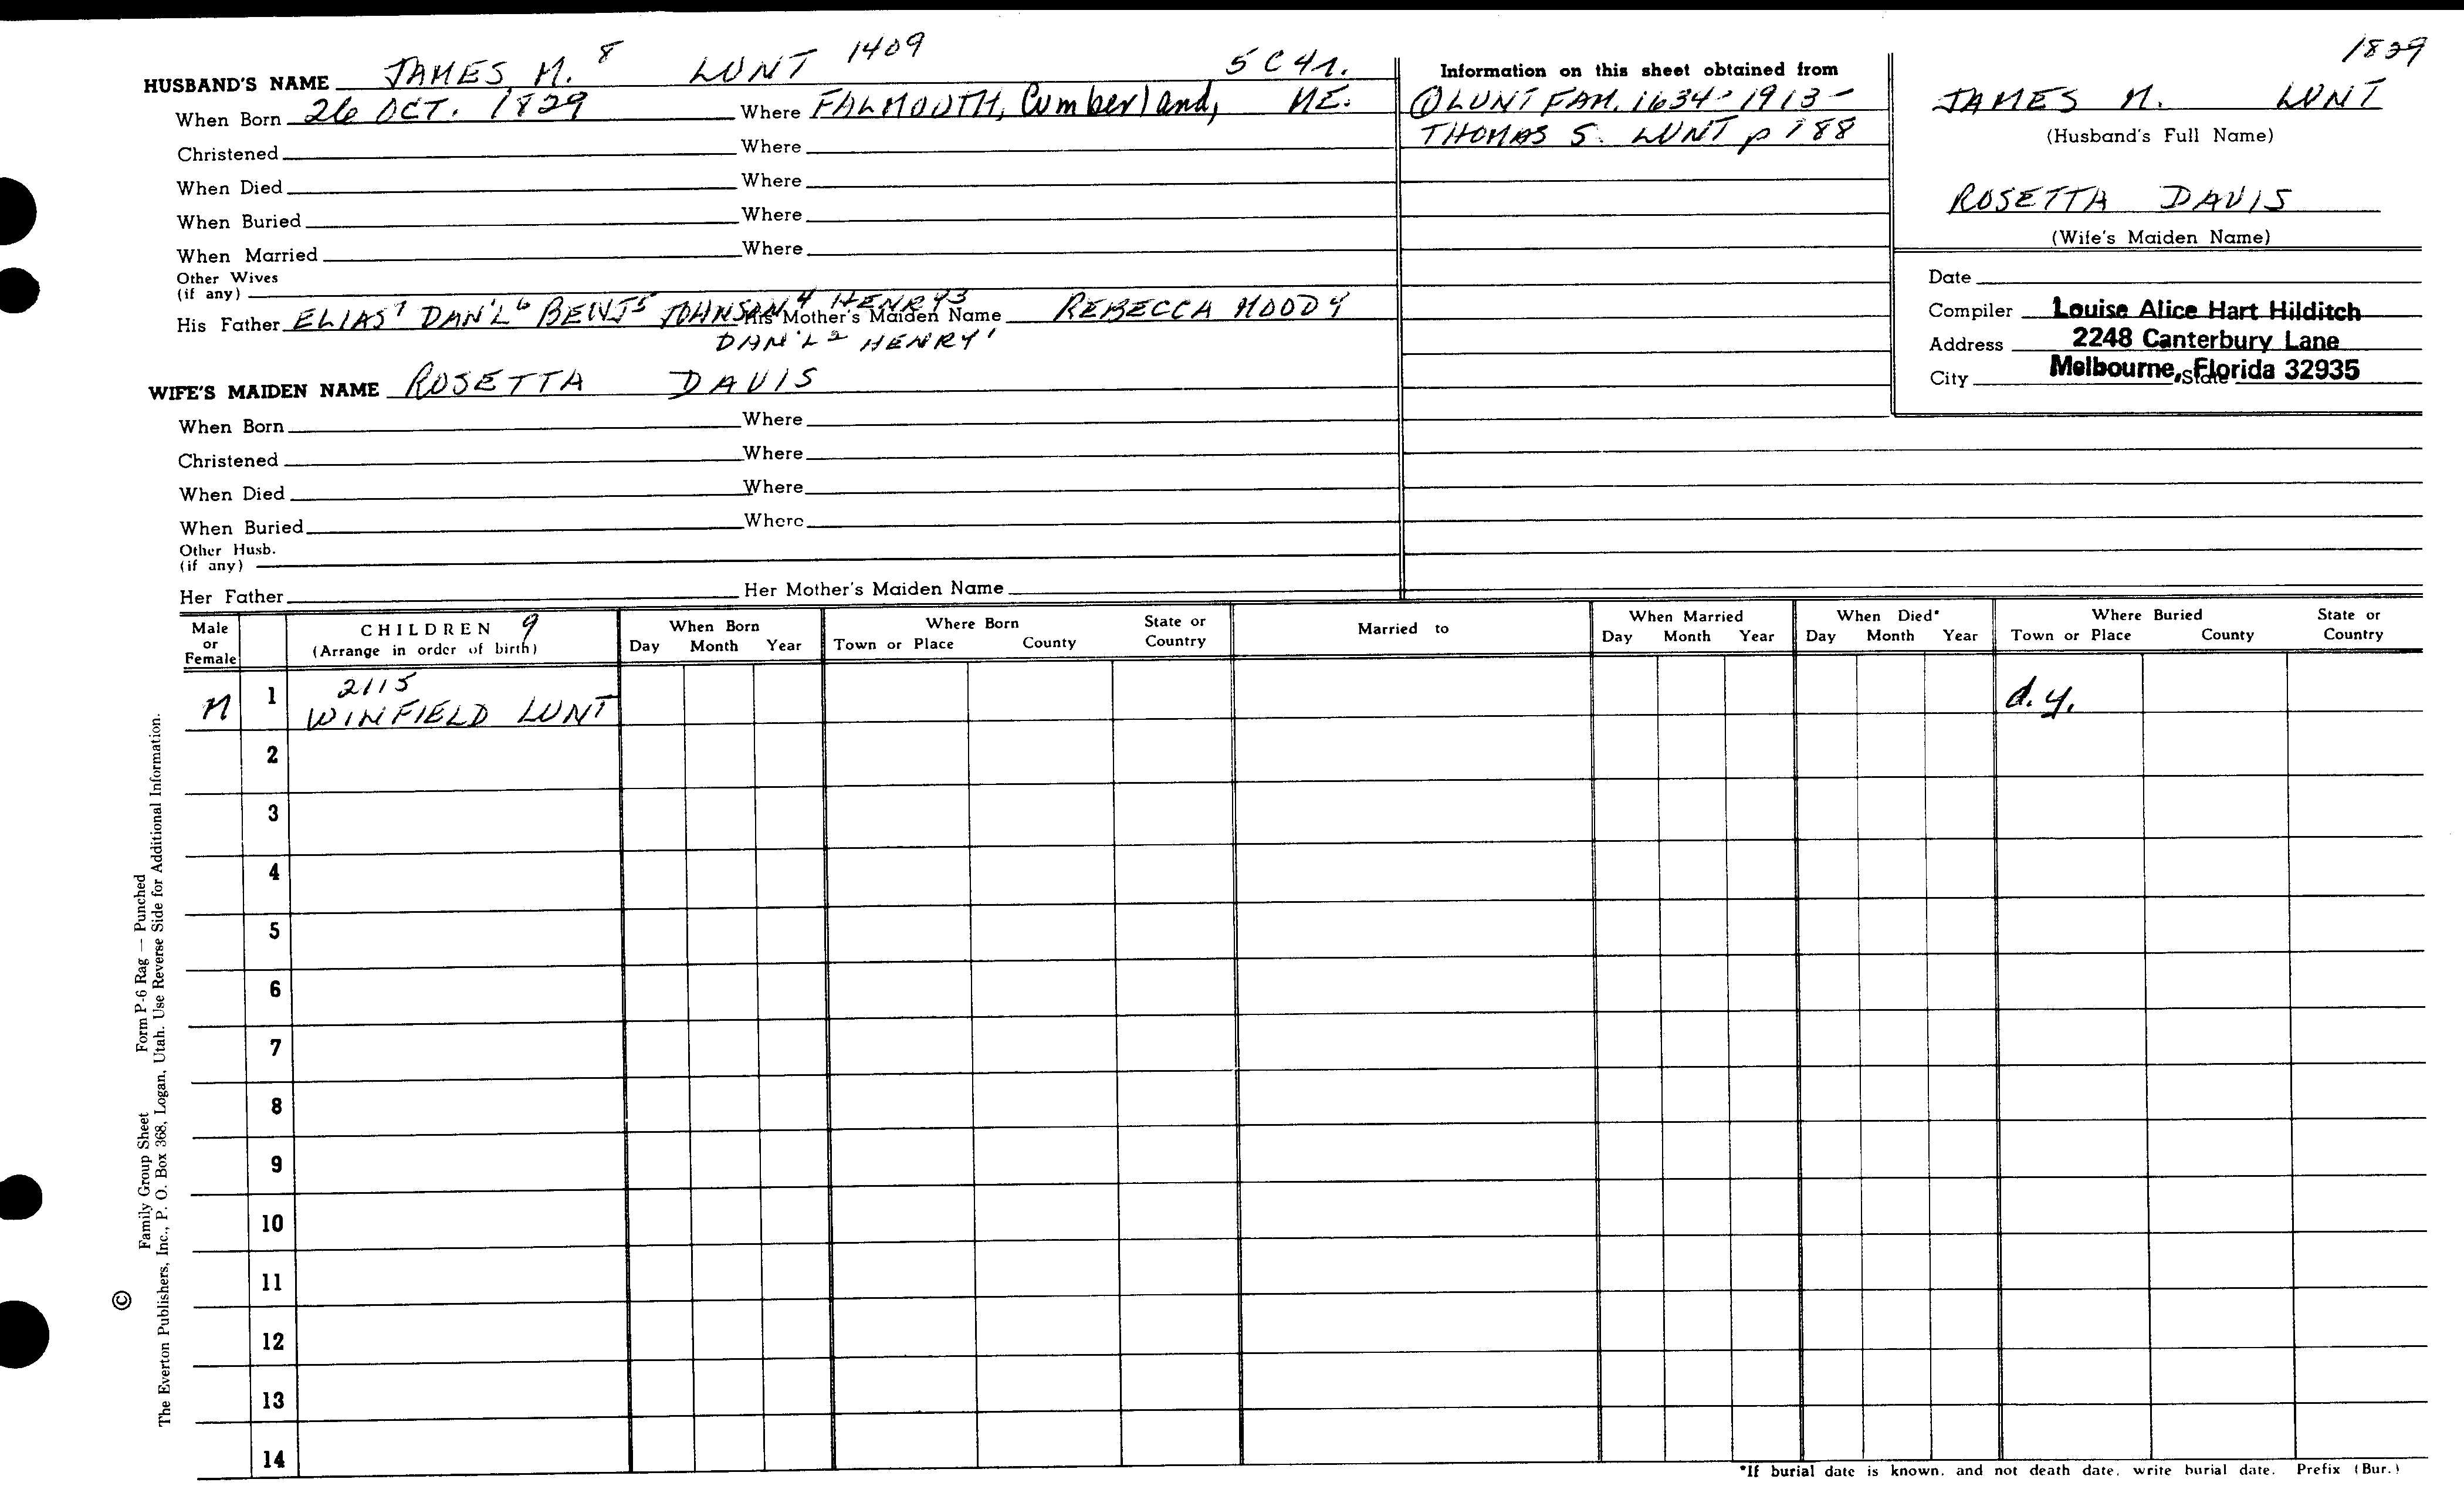 1829
HUSBAND'S NAME JAMES M. 8 LUNT 1409 5 C 4r.
When Born 26 OCT. 1829 Where FALMOUTH, Cumberland, ME.
Christened Where
When Died Where
When Buried Where
When Married Where
Other Wives
(if any)
His Father ELIAS7 DAN'L6 BENJ5 JOHNSON4 HENRY3 His Mother's Maiden Name REBECCA MOODY
DAN'L2 HENRY1
WIFE'S MAIDEN NAME ROSETTA DAVIS
When Born Where
Christened Where
When Died Where
When Buried Where
Other Husb.
(if any)
Her Father Her Mother's Maiden Name
Information on this sheet obtained from
① LUNT FAM. 1634-1913-
THOMAS S. LUNT p 188
JAMES M. LUNT
(Husband's Full Name)
ROSETTA DAVIS
(Wife's Maiden Name)
Date
Compiler Louise Alice Hart Hilditch
Address 2248 Canterbury Lane
City Melbourne, Florida 32935 State
Male or Female CHILDREN 9 (Arrange in order of birth) When Born Day Month Year Where Born Town or Place County State or Country Married to When Married Day Month Year When Died* Day Month Year Where Buried Town or Place County State or Country
2115
M 1 WINFIELD LUNT d.y.
2
3
4
5
6
7
8
9
10
11
12
13
14
*If burial date is known, and not death date, write burial date. Prefix (Bur.)
© Family Group Sheet Form P-6 Rag — Punched
The Everton Publishers, Inc., P. O. Box 368, Logan, Utah. Use Reverse Side for Additional Information.